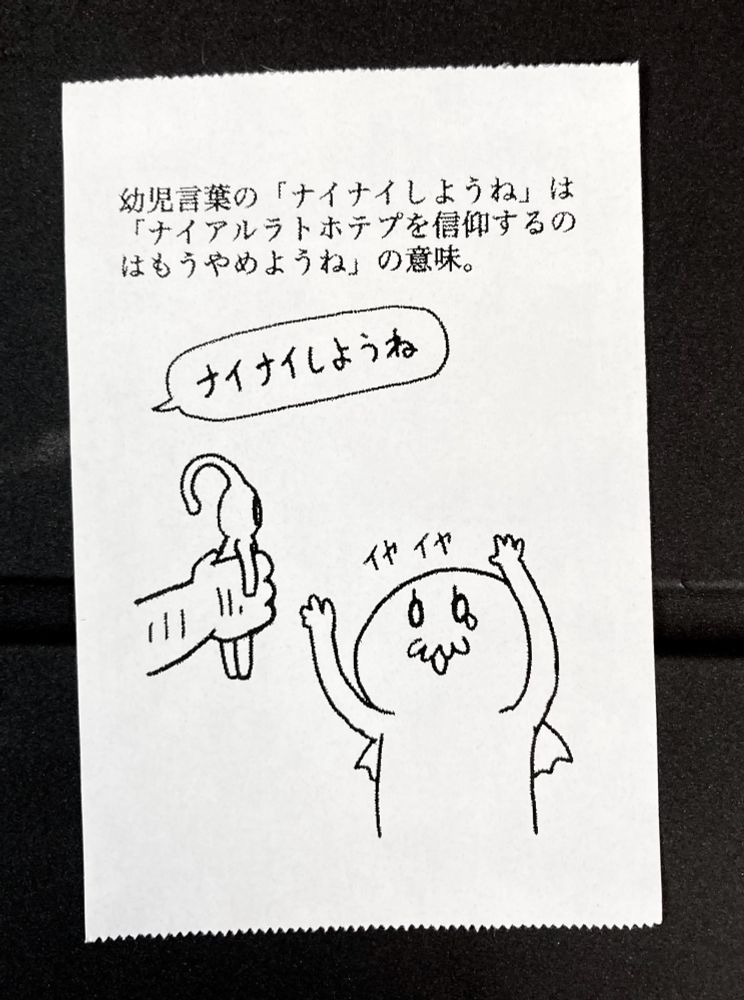 幼児言葉の「ナイナイしようね」は
「ナイアルラトホテプを信仰するの
はもうやめようね」の意味。
ナイナイしようね
イヤ イヤ